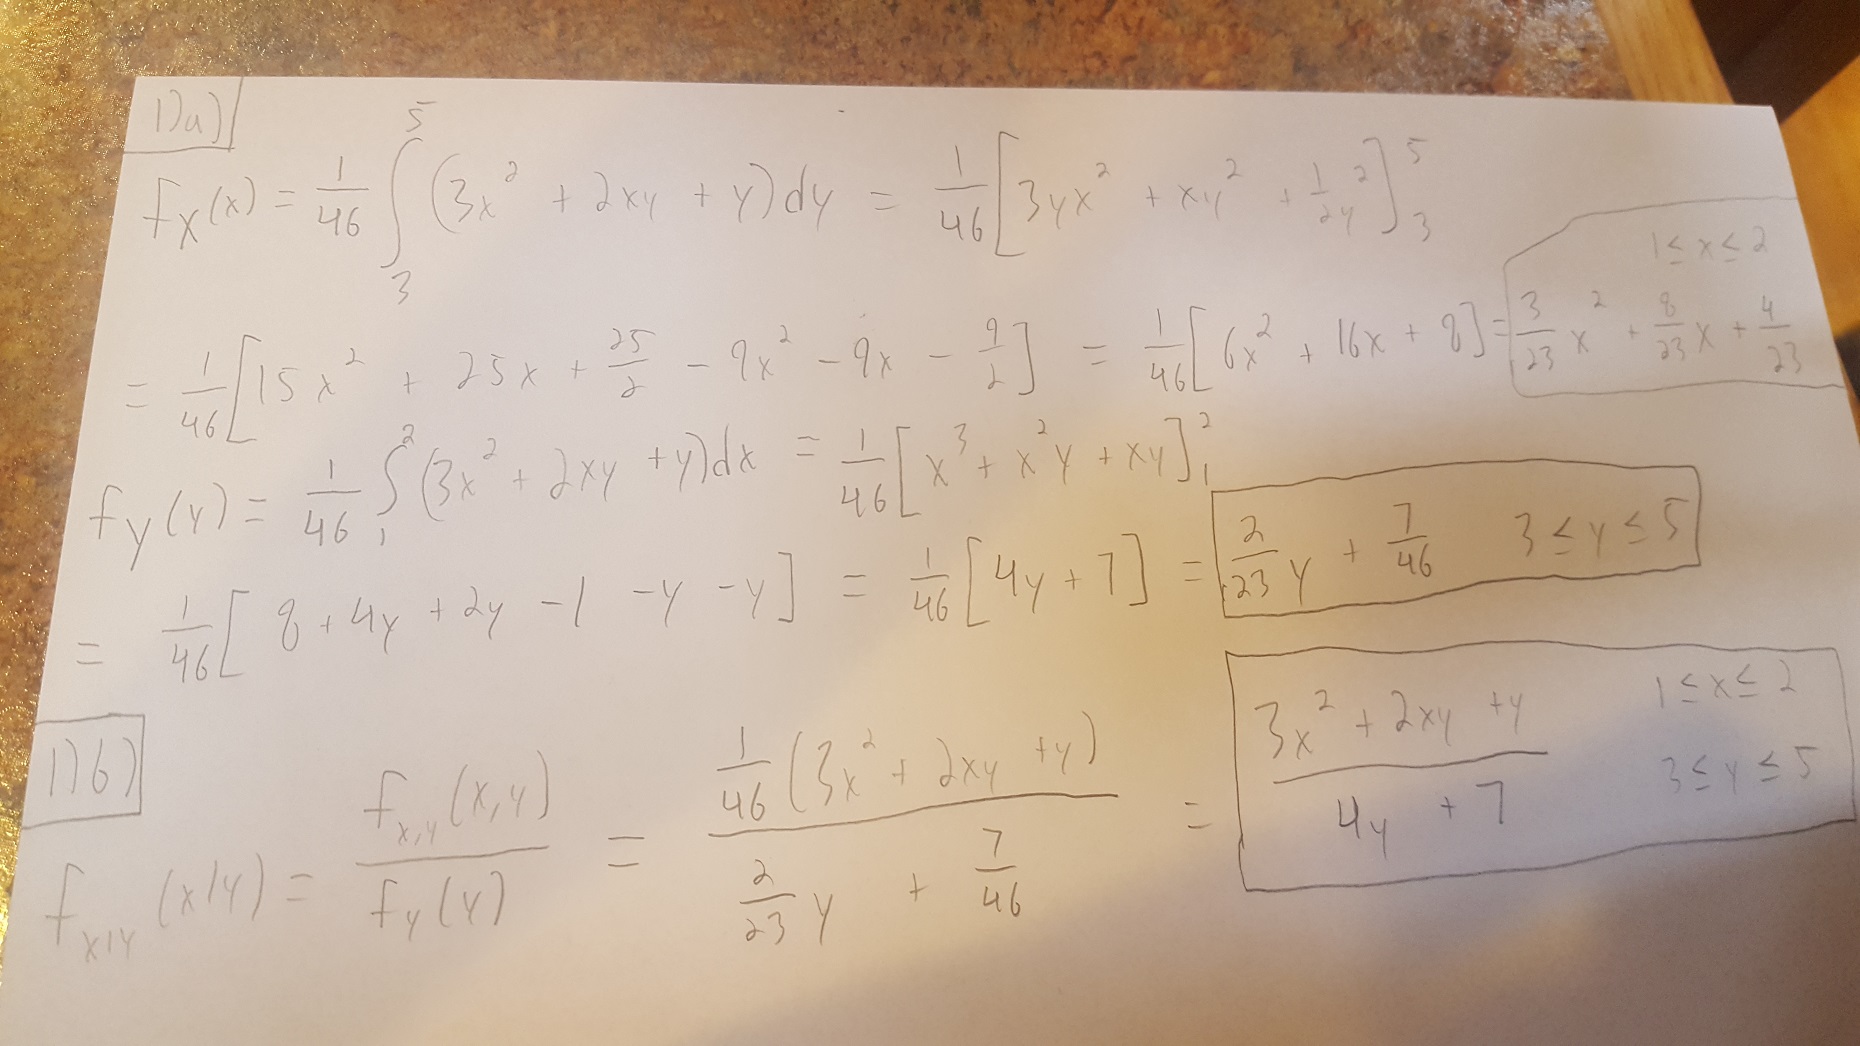 1)a)
f_X(x) = 1/46 ∫_3^5 (3x² + 2xy + y)dy = 1/46 [3yx² + xy² + 1/2 y²]_3^5
= 1/46 [15x² + 25x + 25/2 - 9x² - 9x - 9/2] = 1/46 [6x² + 16x + 8] = 3/23 x² + 8/23 x + 4/23 1 ≤ x ≤ 2
f_Y(y) = 1/46 ∫_1^2 (3x² + 2xy + y)dx = 1/46 [x³ + x²y + xy]_1^2
= 1/46 [8 + 4y + 2y - 1 - y - y] = 1/46 [4y + 7] = 2/23 y + 7/46 3 ≤ y ≤ 5
1)b)
f_X|Y (x|y) = f_X,Y(x,y) / f_Y(y) = 1/46 (3x² + 2xy + y) / (2/23 y + 7/46) = (3x² + 2xy + y) / (4y + 7) 1 ≤ x ≤ 2 3 ≤ y ≤ 5